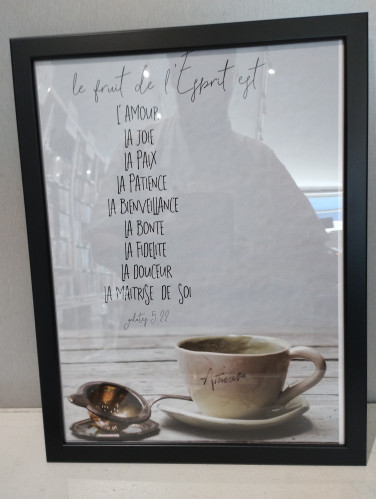 le fruit de l'Esprit est
L'AMOUR
LA JOIE
LA PAIX
LA PATIENCE
LA BIENVEILLANCE
LA BONTE
LA FIDELITE
LA DOUCEUR
LA MAITRISE DE SOI
galates 5.22